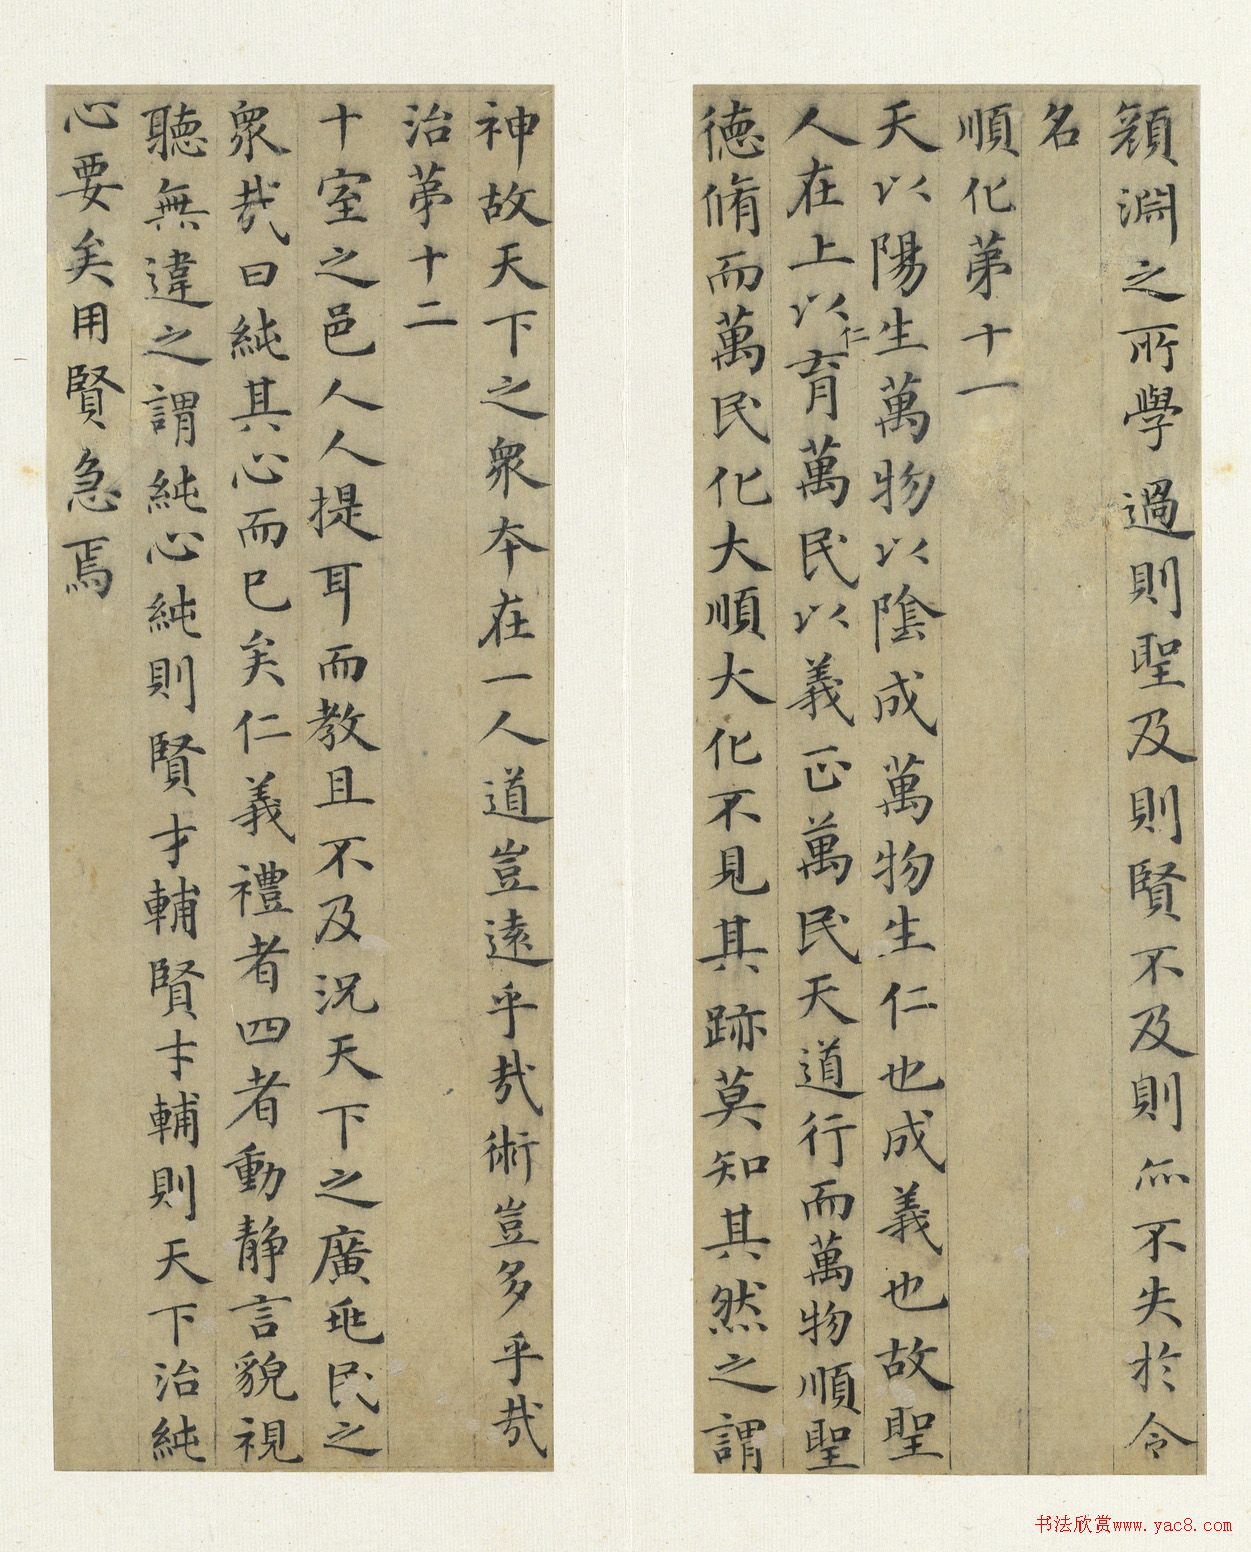 顔淵之所學過則聖及則賢不及則亦不失於令
名
順化第十一
天以陽生萬物以陰成萬物生仁也成義也故聖
人在上以仁育萬民以義正萬民天道行而萬物順聖
徳脩而萬民化大順大化不見其跡莫知其然之謂
神故天下之衆本在一人道豈遠乎哉術豈多乎哉
治第十二
十室之邑人人提耳而教且不及況天下之廣兆民之
衆哉曰純其心而已矣仁義禮者四者動静言貌視
聽無違之謂純心純則賢才輔賢才輔則天下治純
心要矣用賢急焉
书法欣赏www.yac8.com